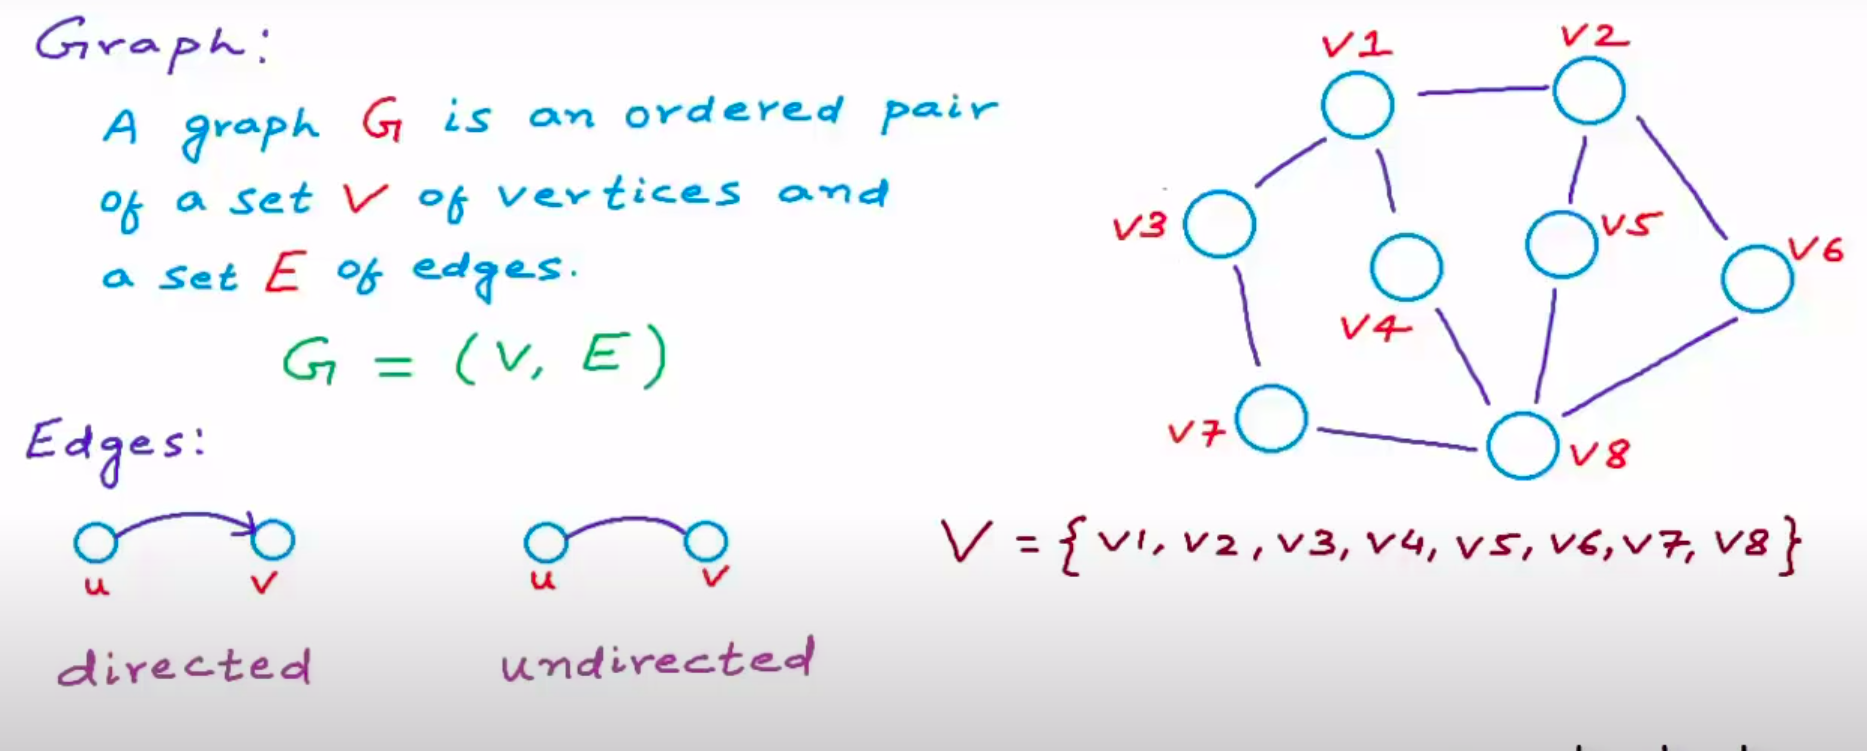 Graph:
A graph G is an ordered pair
of a set V of vertices and
a set E of edges.
G = (V, E)
Edges:
u v
directed
u v
undirected
V1 V2
V3 V5 V6
V4
V7 V8
V = { V1, V2, V3, V4, V5, V6, V7, V8 }